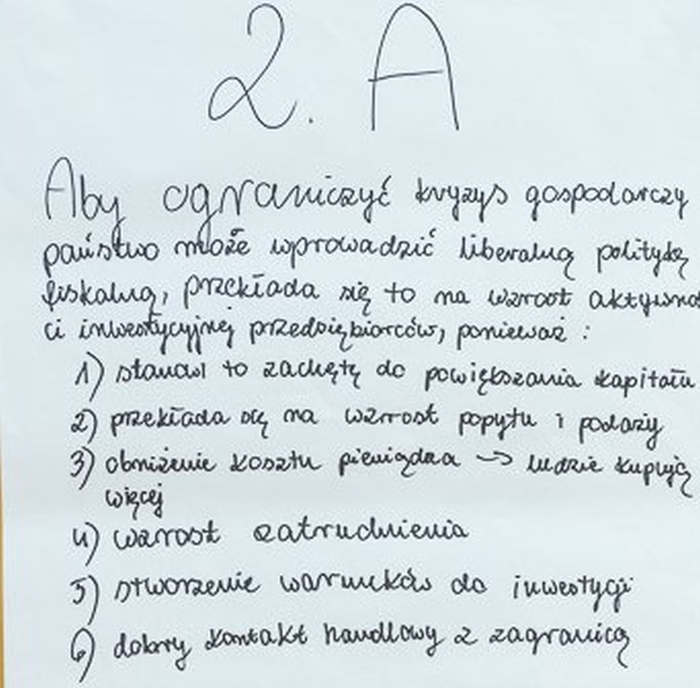 2. A
Aby ograniczyć kryzys gospodarczy
państwo może wprowadzić liberalną politykę
fiskalną, przekłada się to na wzrost aktywnoś
ci inwestycyjnej przedsiębiorców, ponieważ :
1) stanowi to zachętę do powiększania kapitału
2) przekłada się na wzrost popytu i podaży
3) obniżenie kosztu pieniądza -> ludzie kupują
więcej
4) wzrost zatrudnienia
5) stworzenie warunków do inwestycji
6) dobry kontakt handlowy z zagranicą